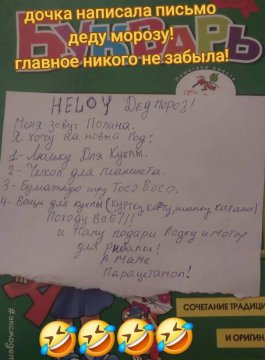 дочка написала письмо
деду морозу!
главное никого не забыла!
БУКВАРЬ
HELOY Дед мороз!
Меня зовут Полина.
Я хочу на новый год:
1- Люльку Для Куклы.
2- Чехол для планшета.
3- Бумажную игру Тоco Boco.
4- Вещи для куклы (куртку, кофту, шапку,
Походу ВСЁ!!!
и Папу подари Лодку и мотор
для рыбалки!
А маме
Парацетамол!
СОЧЕТАНИЕ ТРАДИЦИ
И ОРИГИН